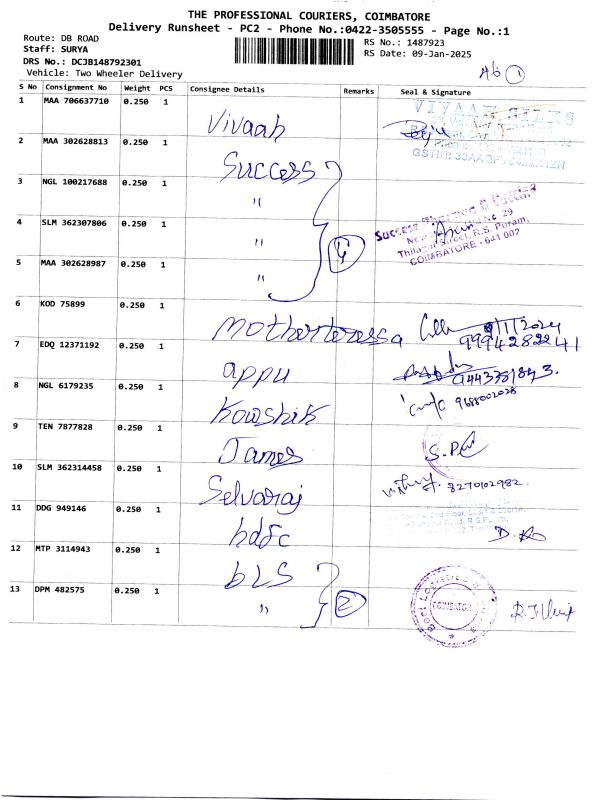 THE PROFESSIONAL COURIERS, COIMBATORE
Delivery Runsheet - PC2 - Phone No.:0422-3505555 - Page No.:1
Route: DB ROAD
RS No.: 1487923
Staff: SURYA
RS Date: 09-Jan-2025
DRS No.: DCJB148792301
Vehicle: Two Wheeler Delivery
Ab 1
S No Consignment No Weight PCS Consignee Details Remarks Seal & Signature
1 MAA 706637710 0.250 1 Vivaah
VIVAAH SILKS
2 MAA 302628813 0.250 1 Success
3 NGL 100217688 0.250 1 "
4 SLM 362307806 0.250 1 " 4
Thilagar Street, R.S. Puram,
COIMBATORE - 641 002
5 MAA 302628987 0.250 1 "
6 KOD 75899 0.250 1 Motherteressa 9/1/2024
9994282241
7 EDQ 12371192 0.250 1 appu
8 NGL 6179235 0.250 1 Kowshik 9688002028
9 TEN 7877828 0.250 1 James
10 SLM 362314458 0.250 1 Selvaraj 8270102982
11 DDG 949146 0.250 1 hdfc
12 MTP 3114943 0.250 1 bLS
13 DPM 482575 0.250 1 " 2
COIMBATORE